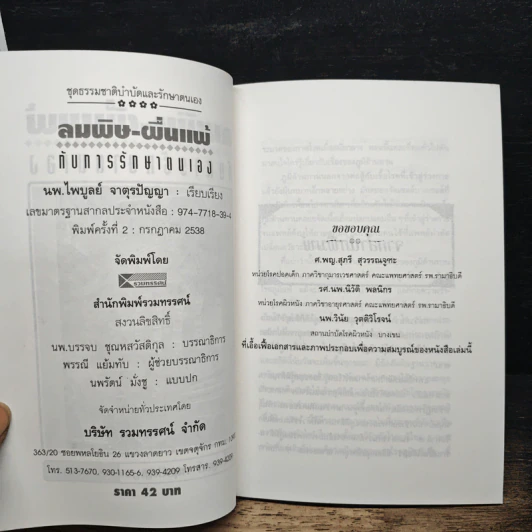 ชุดธรรมชาติบำบัดและรักษาตนเอง
ลมพิษ-ผื่นแพ้
กับการรักษาตนเอง
นพ.ไพบูลย์ จาตุรปัญญา : เรียบเรียง
เลขมาตรฐานสากลประจำหนังสือ : 974-7718-39-4
พิมพ์ครั้งที่ 2 : กรกฎาคม 2538
จัดพิมพ์โดย
รวมทรรศน์
สำนักพิมพ์รวมทรรศน์
สงวนลิขสิทธิ์
นพ.บรรจบ ชุณหสวัสดิกุล : บรรณาธิการ
พรรณี แย้มทับ : ผู้ช่วยบรรณาธิการ
นพรัตน์ มั่งชู : แบบปก
จัดจำหน่ายทั่วประเทศโดย
บริษัท รวมทรรศน์ จำกัด
363/20 ซอยพหลโยธิน 26 แขวงลาดยาว เขตจตุจักร กทม.
โทร. 513-7670, 930-1165-6, 939-4209 โทรสาร. 939-4209
ราคา 42 บาท
ขอขอบคุณ
ศ.พญ.สุภรี สุวรรณจูฑะ
หน่วยโรคปอดเด็ก ภาควิชากุมารเวชศาสตร์ คณะแพทยศาสตร์ รพ.รามาธิบดี
รศ.นพ.นิวัติ พลนิกร
หน่วยโรคผิวหนัง ภาควิชาอายุรศาสตร์ คณะแพทยศาสตร์ รพ.รามาธิบดี
นพ.วินัย วุตติวิโรจน์
สถานบำบัดโรคผิวหนัง บางเขน
ที่เอื้อเฟื้อเอกสารและภาพประกอบเพื่อความสมบูรณ์ของหนังสือเล่มนี้